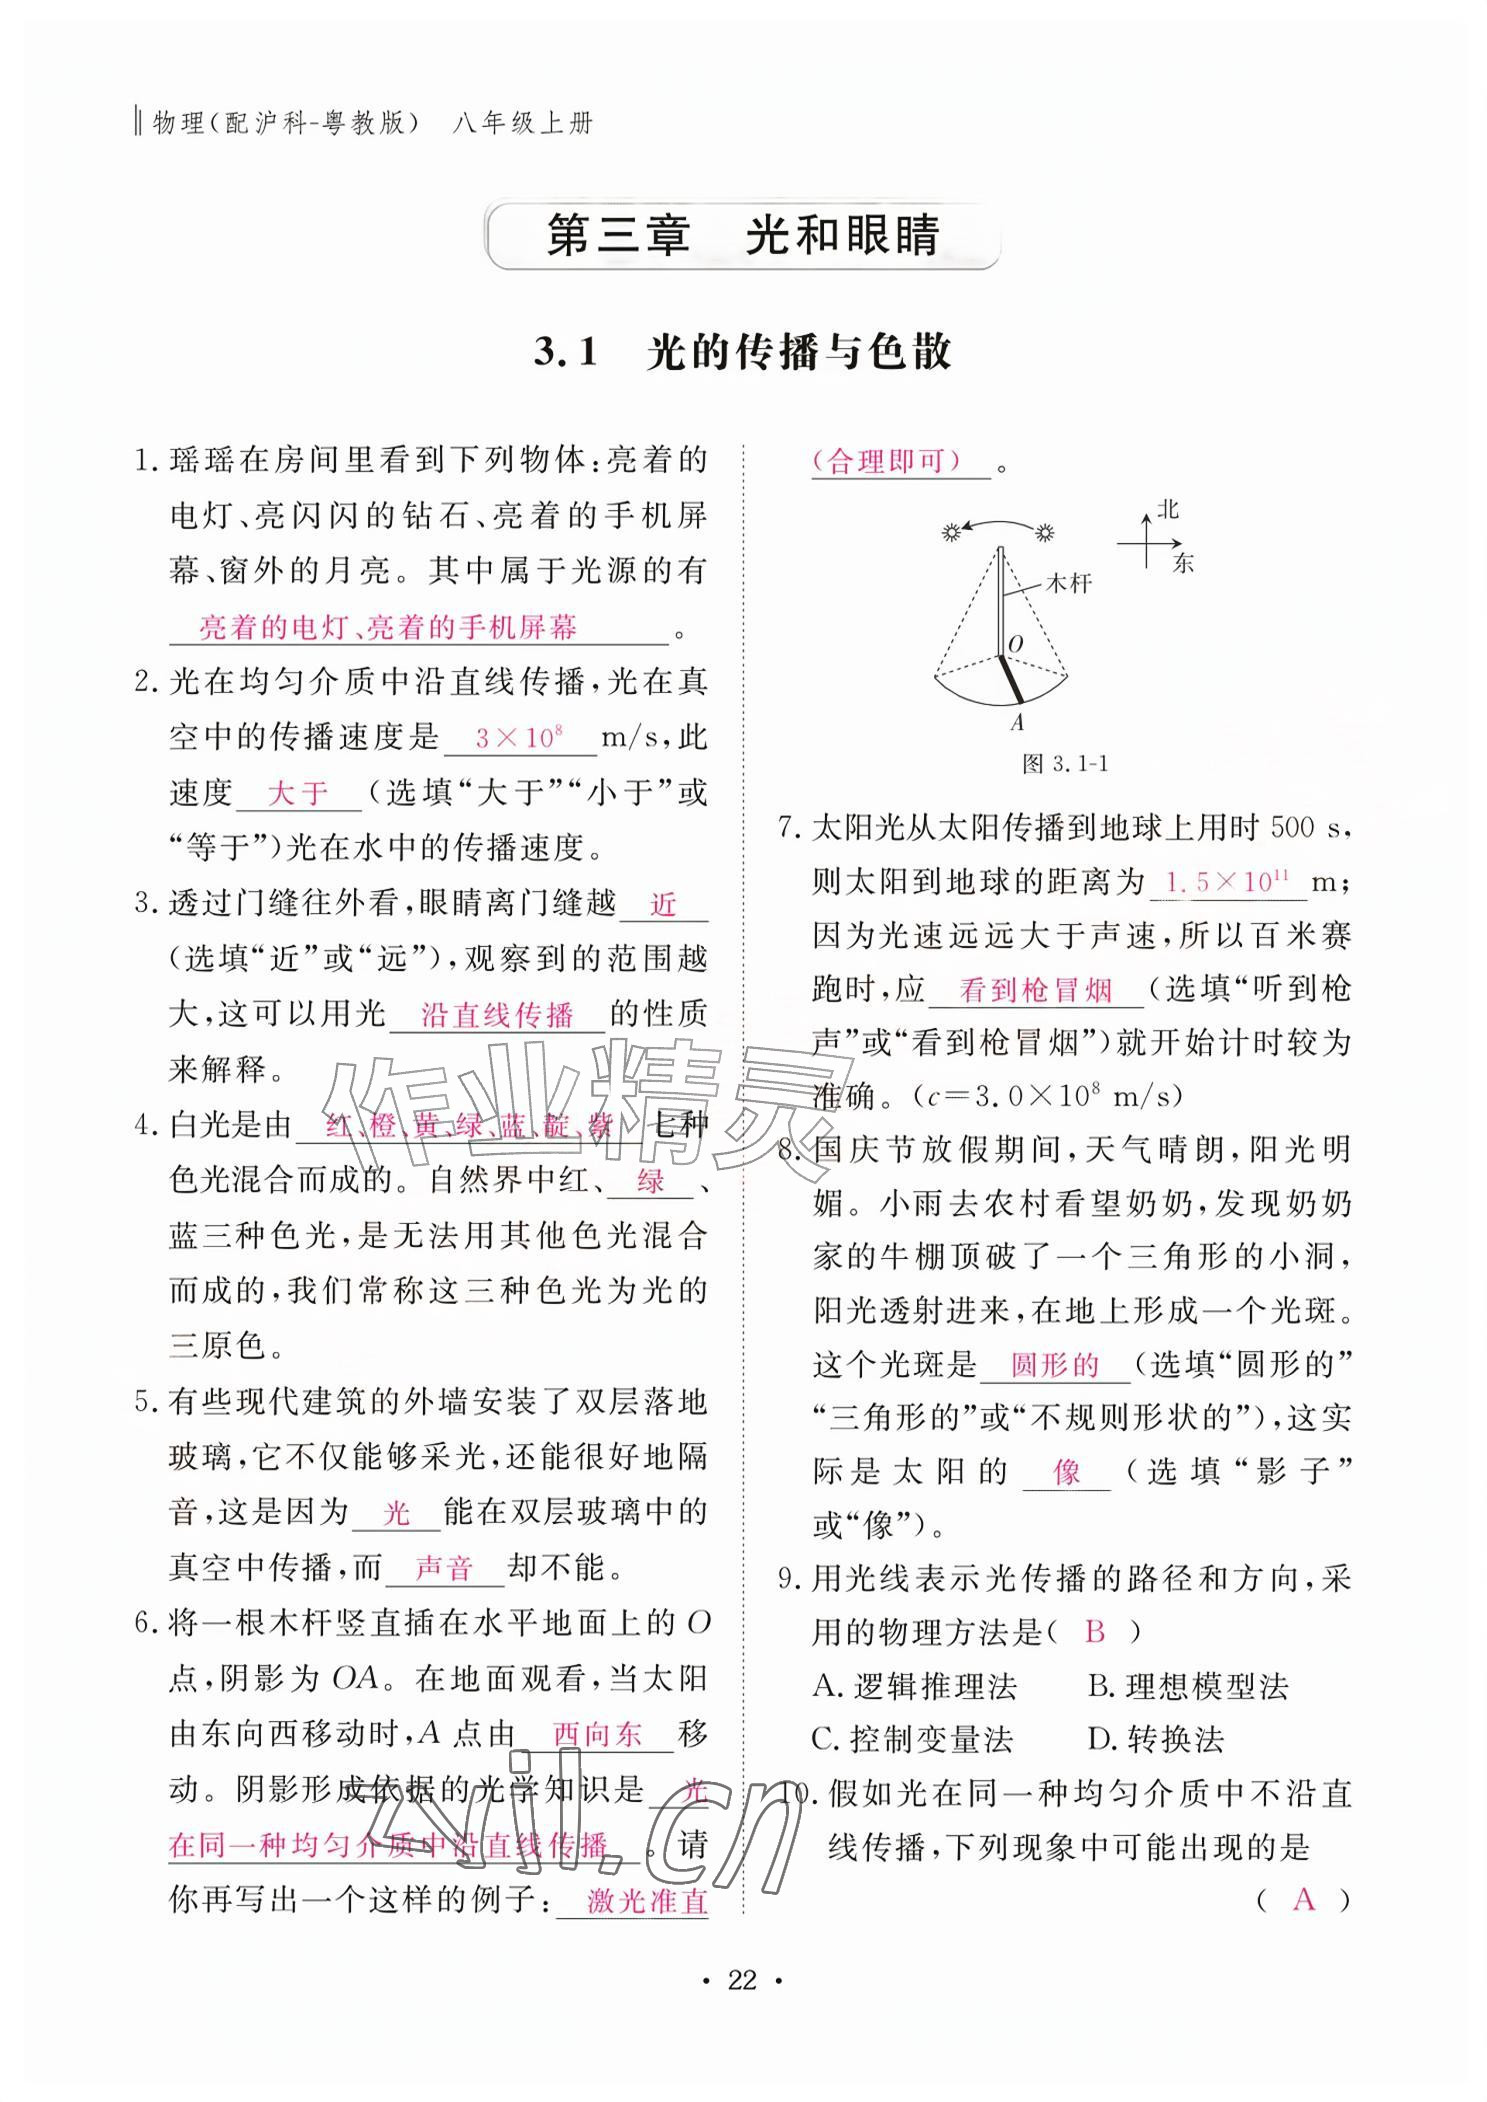 物理(配沪科-粤教版) 八年级上册
第三章 光和眼睛
3.1 光的传播与色散
1. 瑶瑶在房间里看到下列物体:亮着的
电灯、亮闪闪的钻石、亮着的手机屏
幕、窗外的月亮。其中属于光源的有
亮着的电灯、亮着的手机屏幕。
2. 光在均匀介质中沿直线传播,光在真
空中的传播速度是 3×10⁸ m/s,此
速度 大于 (选填“大于”“小于”或
“等于”)光在水中的传播速度。
3. 透过门缝往外看,眼睛离门缝越 近
(选填“近”或“远”),观察到的范围越
大,这可以用光 沿直线传播 的性质
来解释。
4. 白光是由 红、橙、黄、绿、蓝、靛、紫 七种
色光混合而成的。自然界中红、 绿 、
蓝三种色光,是无法用其他色光混合
而成的,我们常称这三种色光为光的
三原色。
5. 有些现代建筑的外墙安装了双层落地
玻璃,它不仅能够采光,还能很好地隔
音,这是因为 光 能在双层玻璃中的
真空中传播,而 声音 却不能。
6. 将一根木杆竖直插在水平地面上的 O
点,阴影为 OA。在地面观看,当太阳
由东向西移动时,A 点由 西向东 移
动。阴影形成依据的光学知识是 光
在同一种均匀介质中沿直线传播 。请
你再写出一个这样的例子: 激光准直
(合理即可) 。
北
东
木杆
O
A
图 3.1-1
7. 太阳光从太阳传播到地球上用时 500 s,
则太阳到地球的距离为 1.5×10¹¹ m;
因为光速远远大于声速,所以百米赛
跑时,应 看到枪冒烟 (选填“听到枪
声”或“看到枪冒烟”)就开始计时较为
准确。(c=3.0×10⁸ m/s)
8. 国庆节放假期间,天气晴朗,阳光明
媚。小雨去农村看望奶奶,发现奶奶
家的牛棚顶破了一个三角形的小洞,
阳光透射进来,在地上形成一个光斑。
这个光斑是 圆形的 (选填“圆形的”
“三角形的”或“不规则形状的”),这实
际是太阳的 像 (选填“影子”
或“像”)。
9. 用光线表示光传播的路径和方向,采
用的物理方法是( B )
A. 逻辑推理法 B. 理想模型法
C. 控制变量法 D. 转换法
10. 假如光在同一种均匀介质中不沿直
线传播,下列现象中可能出现的是
( A )
作业精灵
zyjl.cn
• 22 •